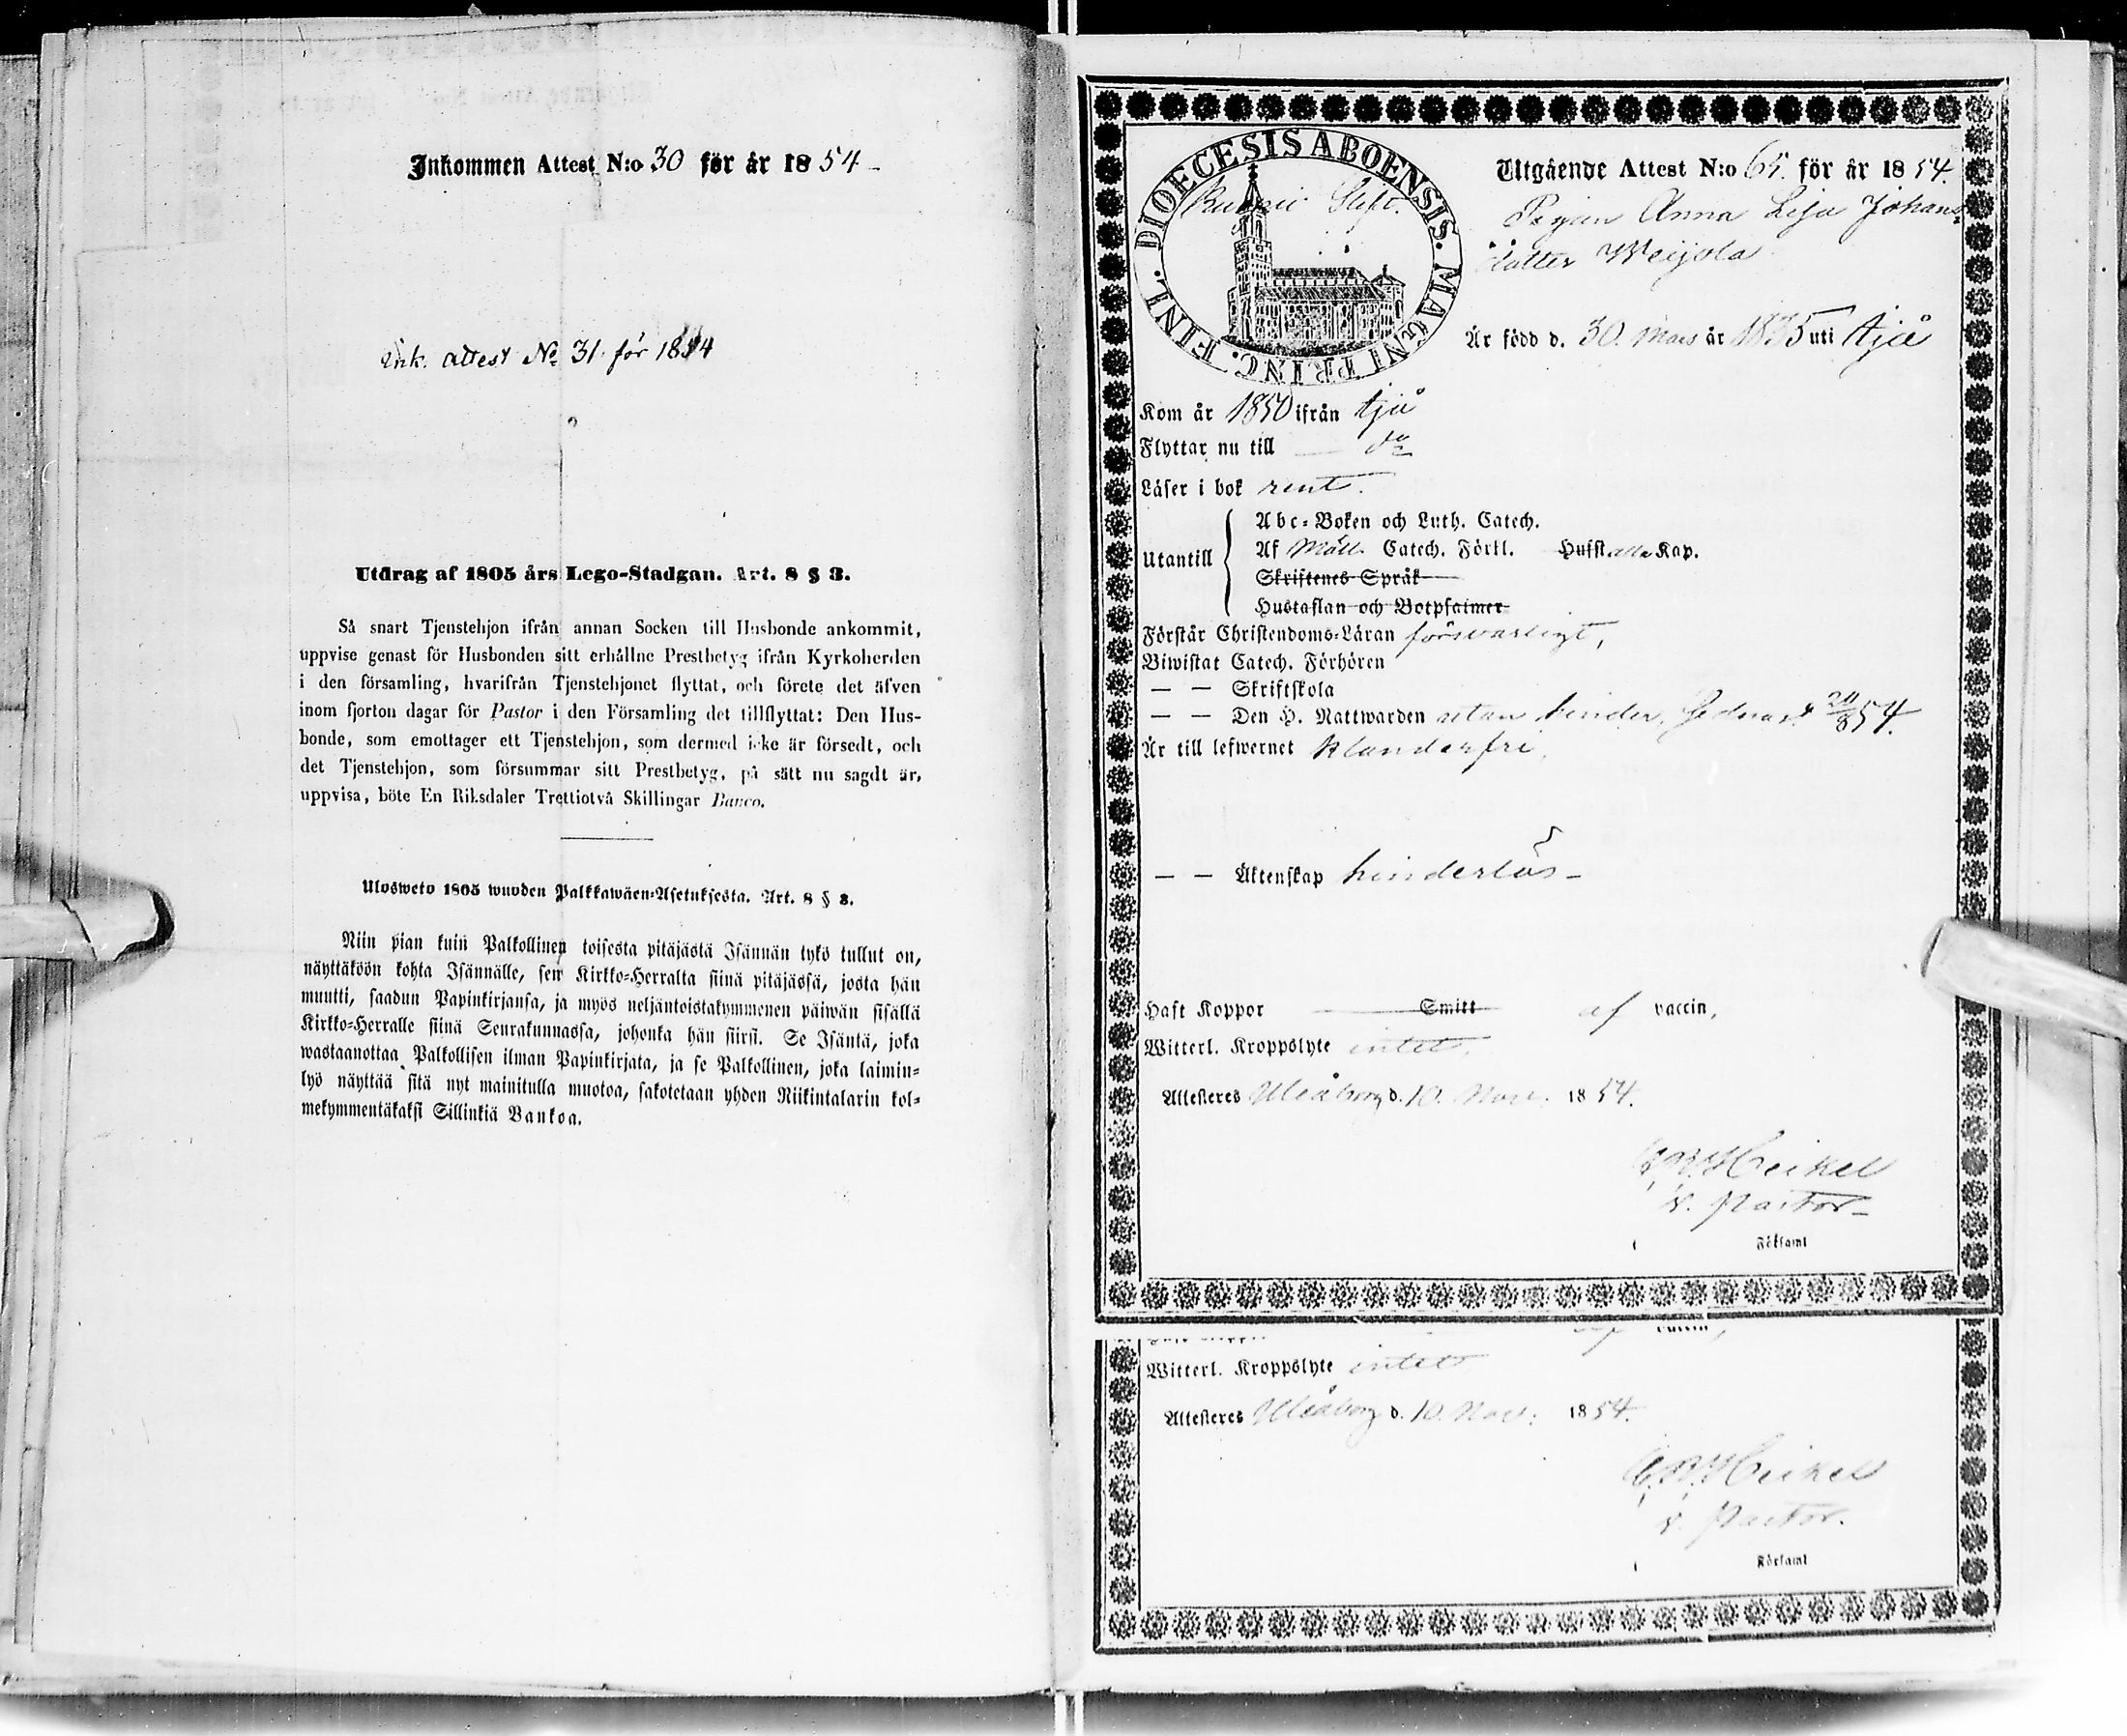 Inkommen Attest N:o 30 för år 1854
Ink. attest No 31. för 1854
Utdrag af 1805 års Lego-Stadgan. Art. 8 § 3.
Så snart Tjenstehjon ifrån annan Socken till Husbonde ankommit,
uppvise genast för Husbonden sitt erhållne Prestbetyg ifrån Kyrkoherden
i den församling, hvarifrån Tjenstehjonet flyttat, och förete det äfven
inom fjorton dagar för Pastor i den Församling det tillflyttat: Den Hus-
bonde, som emottager ett Tjenstehjon, som dermed icke är försedt, och
det Tjenstehjon, som försummar sitt Prestbetyg, på sätt nu sagdt är,
uppvisa, böte En Riksdaler Trettiotvå Skillingar Banco.
Ulosweto 1805 wuoden Palkkawäen-Asetuksesta. Art. 8 § 3.
Niin pian kuin Palkollinen toisesta pitäjästä Isännän tykö tullut on,
näyttäköön kohta Isännälle, sen Kirkko-Herralta siinä pitäjässä, josta hän
muutti, saadun Papinkirjansa, ja myös neljäntoistakymmenen päiwän sisällä
Kirkko-Herralle siinä Seurakunnassa, johonka hän siirsi. Se Isäntä, joka
wastaanottaa Palkollisen ilman Papinkirjata, ja se Palkollinen, joka laimin-
lyö näyttää sitä nyt mainitulla muotoa, sakotetaan yhden Riikintalarin kol-
mekymmentäkaksi Sillinkiä Bankoa.
DIOECESIS ABOENSIS. MAGNI PRINC. FINL.
Kuopio Stift.
Utgående Attest N:o 65. för år 1854.
Pigan Anna Lisa Johans
dotter Weijola
Är född d. 30. Mars år 1835 uti Ijå
Kom år 1850 ifrån Ijå
Flyttar nu till do
Läser i bok rent.
Utantill
Abc-Boken och Luth. Catech.
Af Möll. Catech. Förkl. Hufst alla Kap.
Skriftenes Språk
Hustaflan och Botpsalmer
Förstår Christendoms-Läran försvarligt,
Biwistat Catech. Förhören
— — Skriftskola
— — Den H. Nattwarden utan hinder, sednast 20/8 54.
Är till lefwernet klanderfri.
— — Äktenskap hinderlös
Haft Koppor Smitt af vaccin,
Witterl. Kroppslyte intet.
Attesteres Uleåborg d. 10. Nov. 1854.
Heikel
v. Pastor
Församl
vaccin,
Witterl. Kroppslyte intet
Attesteres Uleåborg d. 10. Nov: 1854.
Heikel
v. Pastor.
Församl